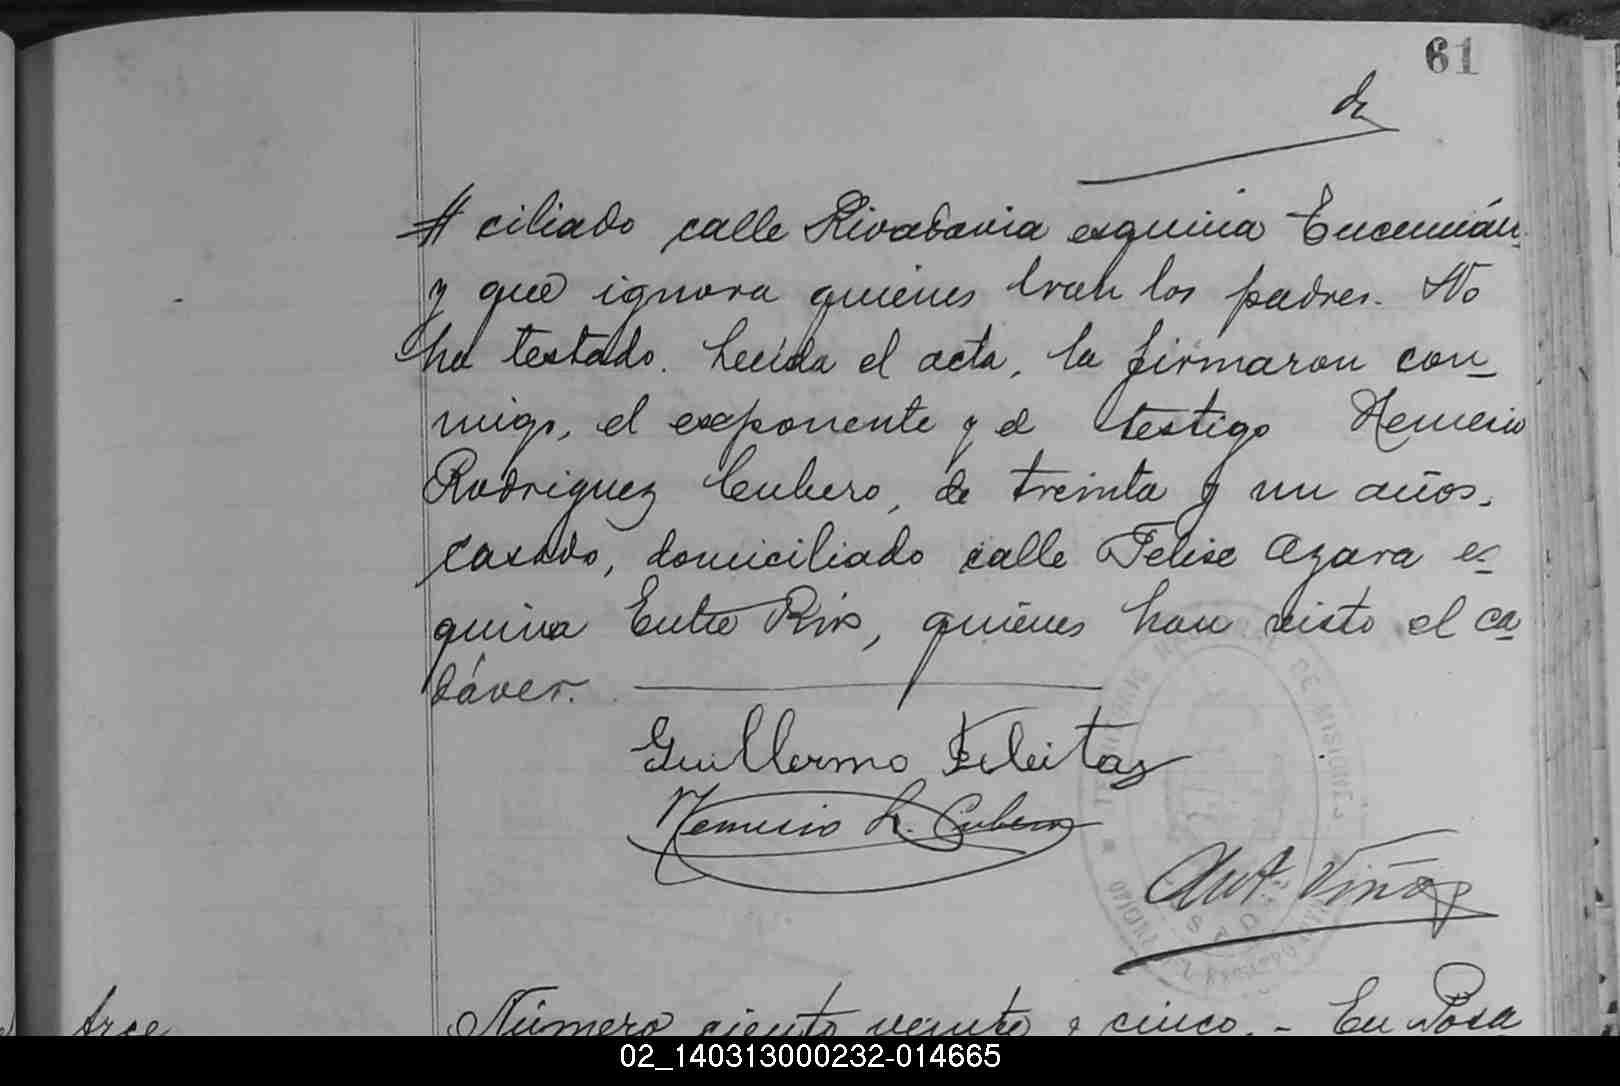 61
# ciliado calle Rivadavia esquina Tucumán
y que ignora quienes eran los padres. No
ha testado. Leída el acta, la firmaron con-
migo, el exponente y el testigo Nemesio
Rodriguez Cubero, de treinta y un años,
casado, domiciliado calle Felise Azara es-
quina Entre Rios, quienes han visto el ca-
dáver.
Guillermo Fleitas
Nemesio R. Cubero
Ant. Viñas
Arce
Número ciento veinte y cinco. - En Posa
02_140313000232-014665